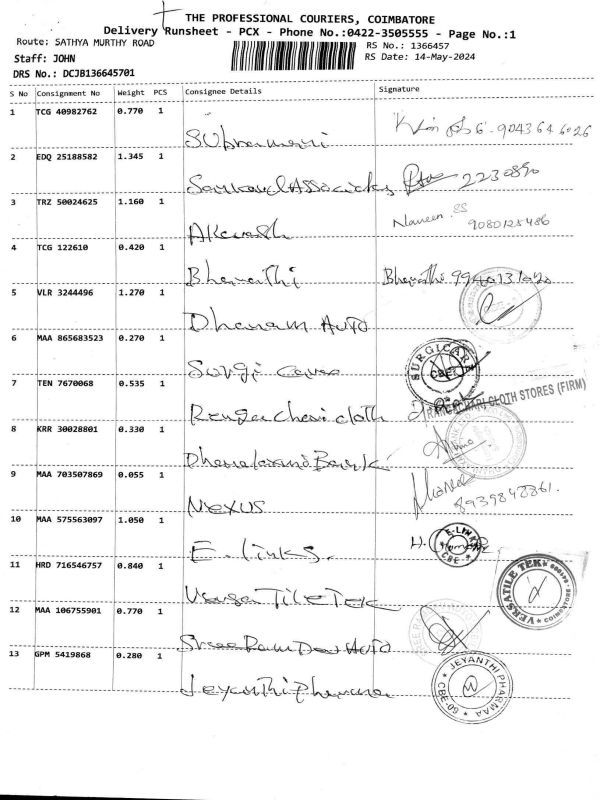 THE PROFESSIONAL COURIERS, COIMBATORE
Delivery Runsheet - PCX - Phone No.:0422-3505555 - Page No.:1
Route: SATHYA MURTHY ROAD
RS No.: 1366457
Staff: JOHN
RS Date: 14-May-2024
DRS No.: DCJB136645701
S No Consignment No Weight PCS Consignee Details Signature
1 TCG 40982762 0.770 1
2 EDQ 25188582 1.345 1
2230890
3 TRZ 50024625 1.160 1
Naveen. SS
9080125486
4 TCG 122610 0.420 1
Bharathi Bharathi 9940131020
5 VLR 3244496 1.270 1
Dhanam Auto
6 MAA 865683523 0.270 1
SURGICARE
CBE
7 TEN 7670068 0.535 1
CLOTH STORES (FIRM)
cloth
8 KRR 30028801 0.330 1
Bank
9 MAA 703507869 0.055 1
Nexus
8939848861.
10 MAA 575563097 1.050 1
E. Links. E-LINKS
CBE
11 HRD 716546757 0.840 1
VERSATILE TEK
TILE TEK
12 MAA 106755901 0.770 1
Sree Ram Dev Auto
13 GPM 5419868 0.280 1
JEYANTHI PHARMAA
CBE-
Jeyanthi Pharma